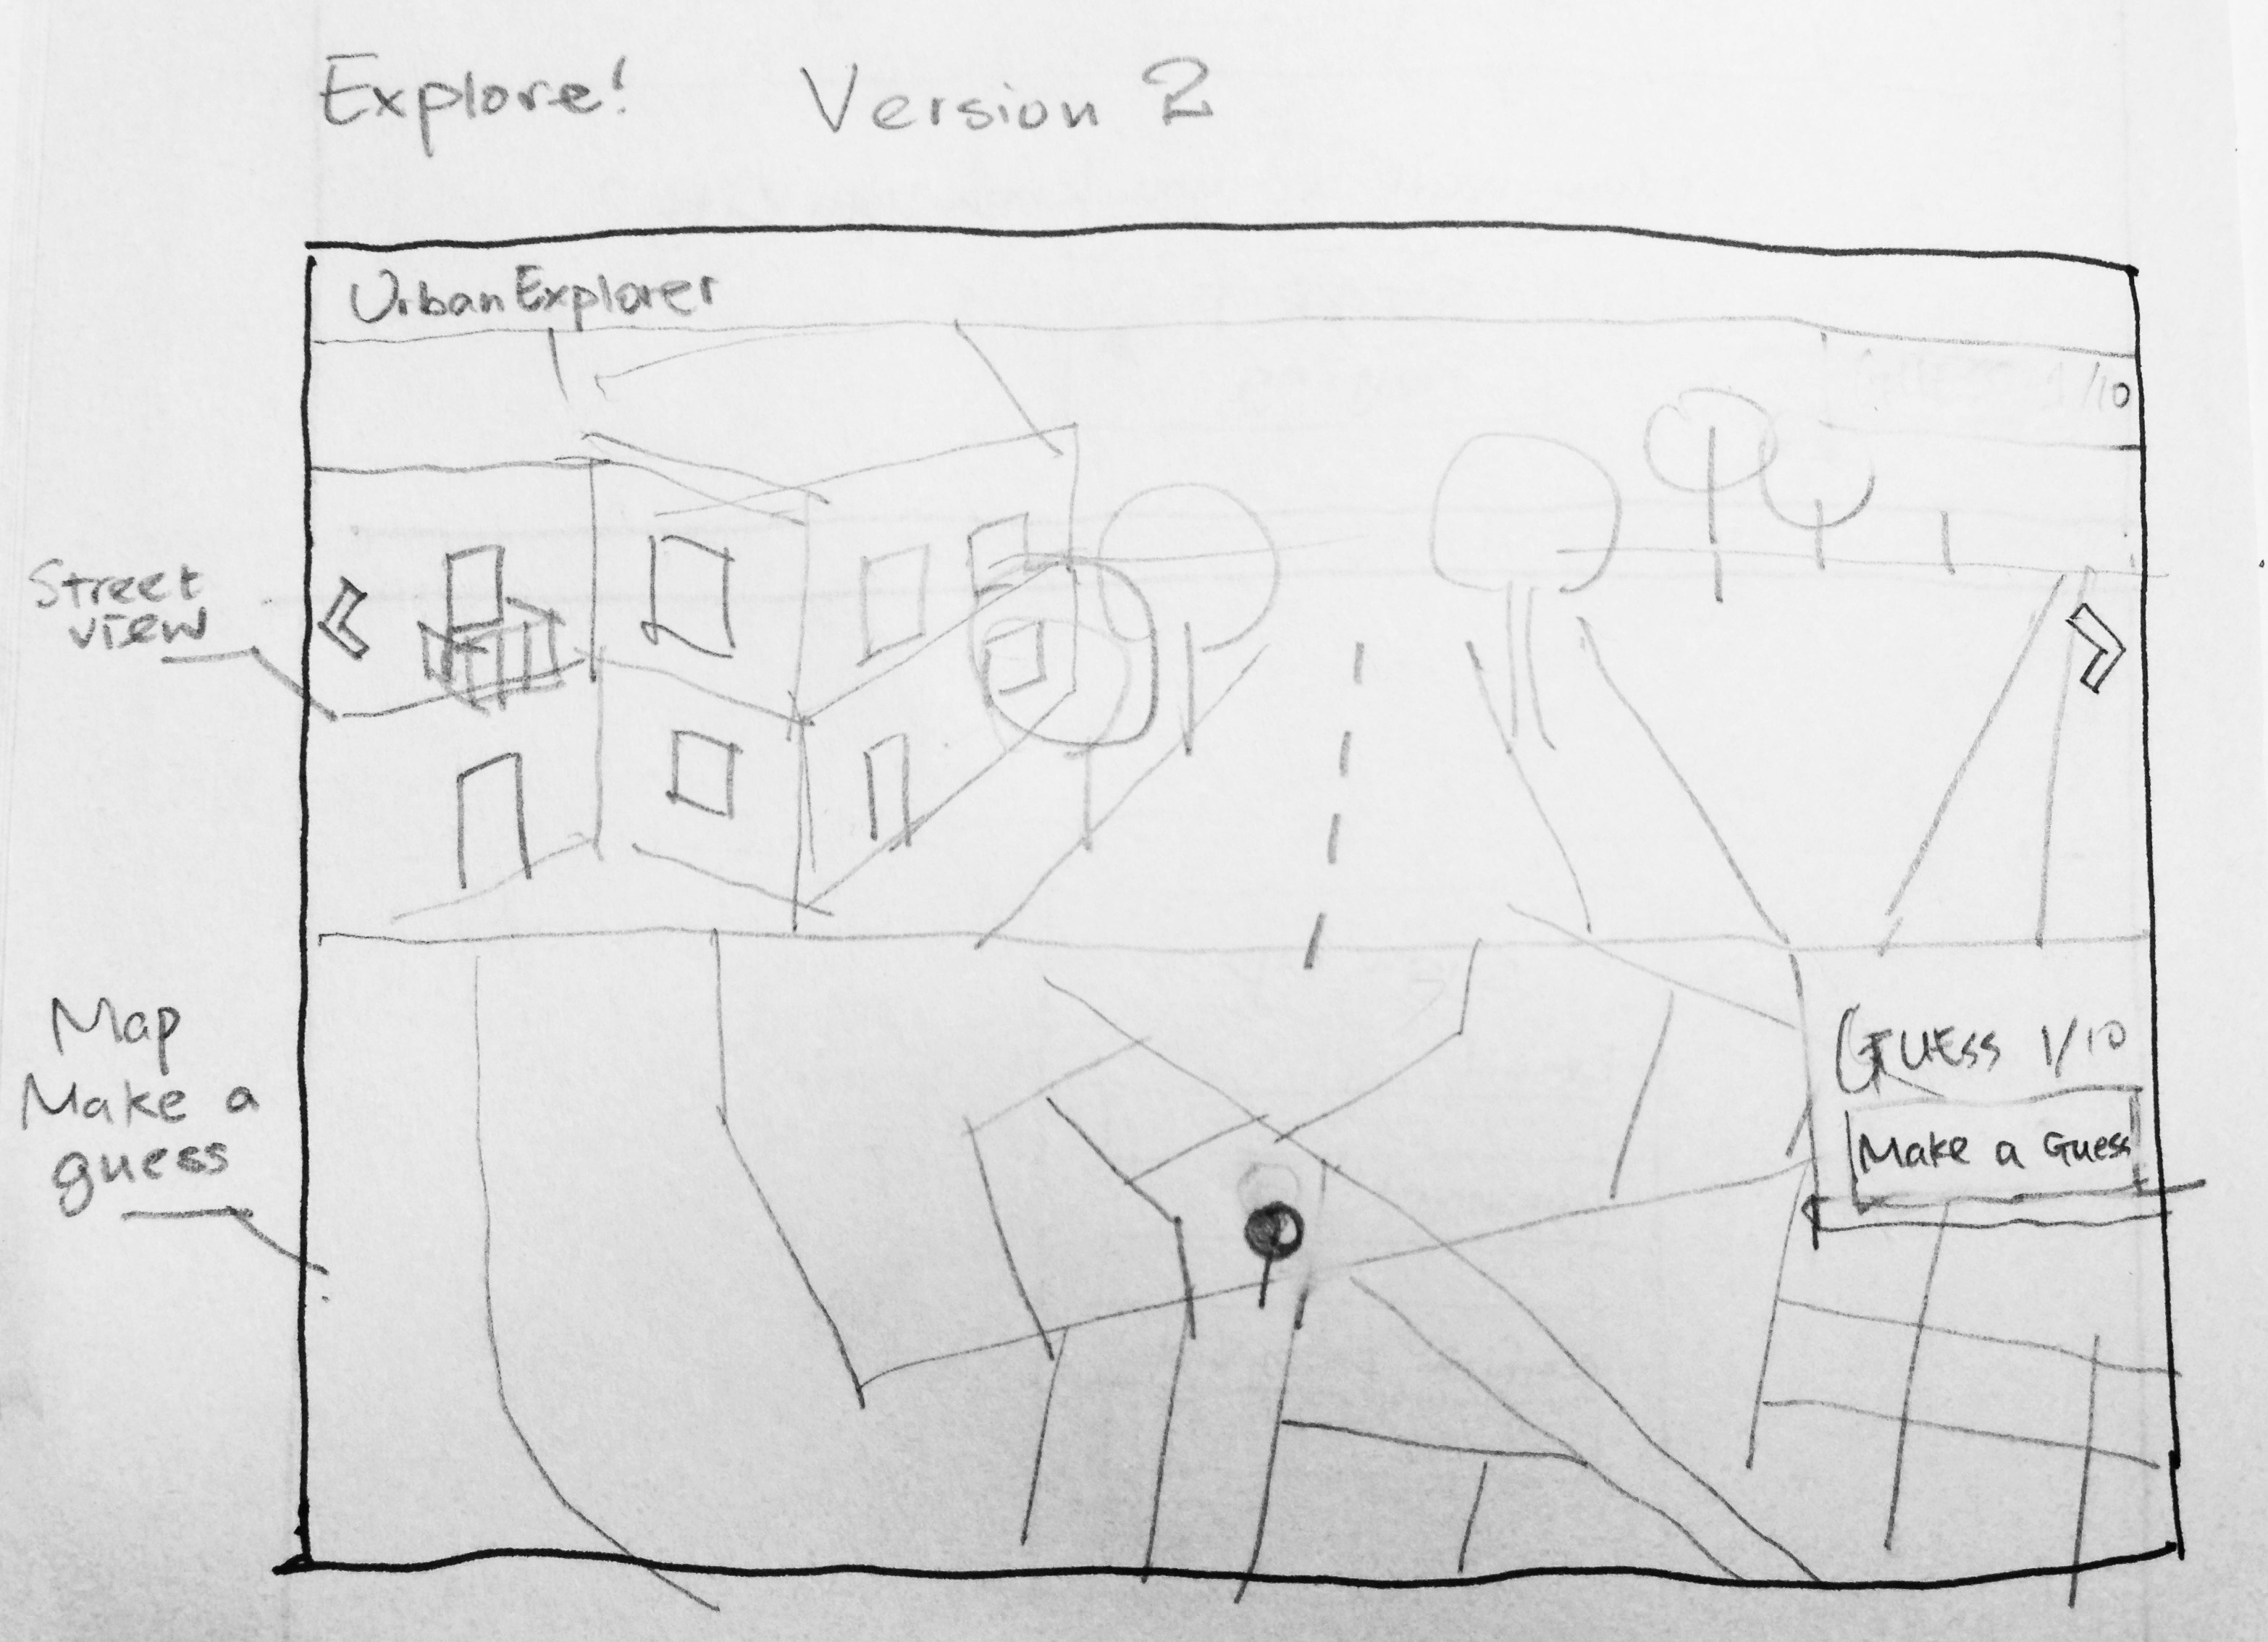 Explore! Version 2
UrbanExplorer
/10
Street
view
Map
Make a
guess
Guess 1/10
Make a Guess